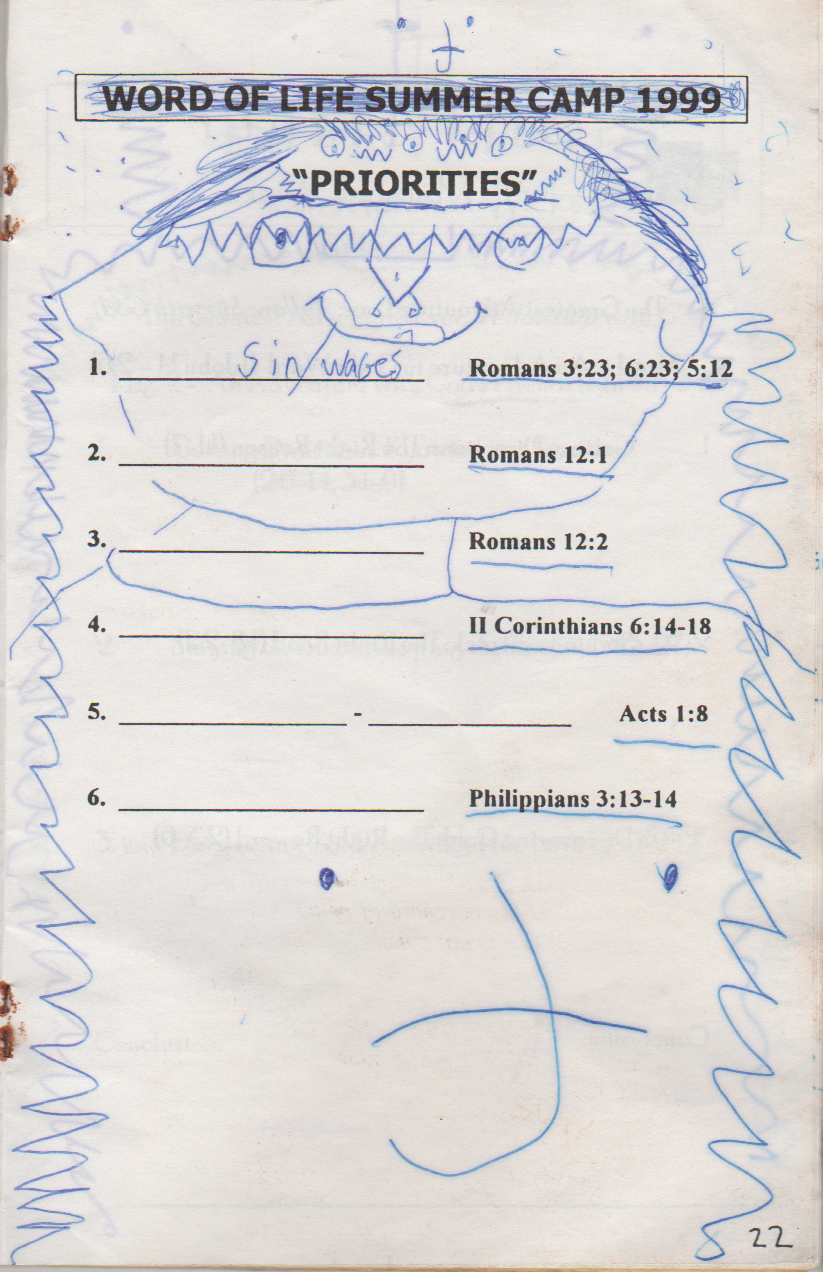 WORD OF LIFE SUMMER CAMP 1999
“PRIORITIES”
1. Sin wages Romans 3:23; 6:23; 5:12
2. Romans 12:1
3. Romans 12:2
4. II Corinthians 6:14-18
5. - Acts 1:8
6. Philippians 3:13-14
22